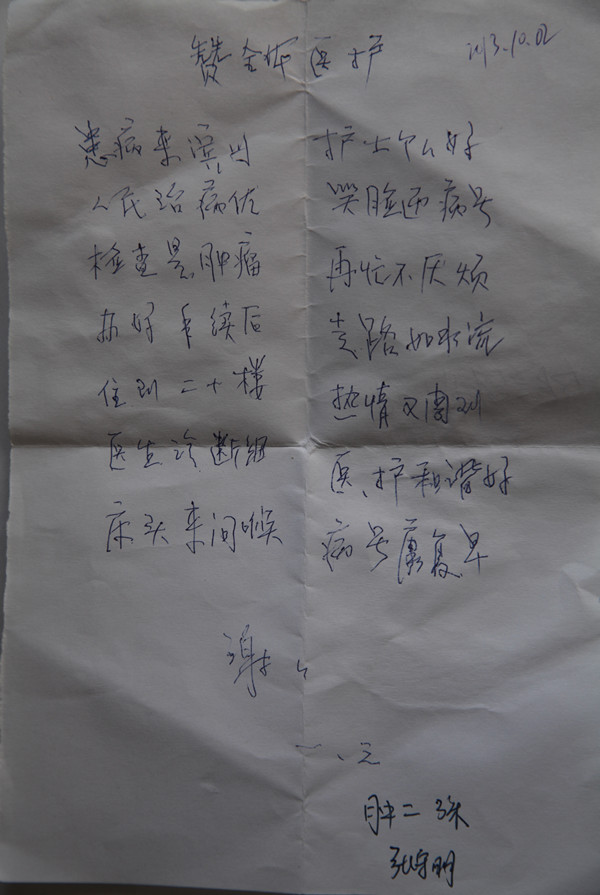 赞全体医护
2013.10.02
患病来滨州
人民治病优
检查是肿瘤
办好手续后
住到二十楼
医生诊断细
床头来问候
护士个个好
笑脸迎病号
再忙不厌烦
走路如水流
热情又周到
医、护和谐好
病号康复早
谢谢
肿二